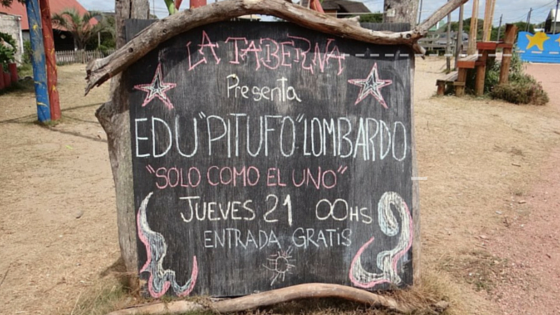 LA TABERNA
Presenta
EDU "PITUFO" LOMBARDO
"SOLO COMO EL UNO"
JUEVES 21 00HS
ENTRADA GRATIS